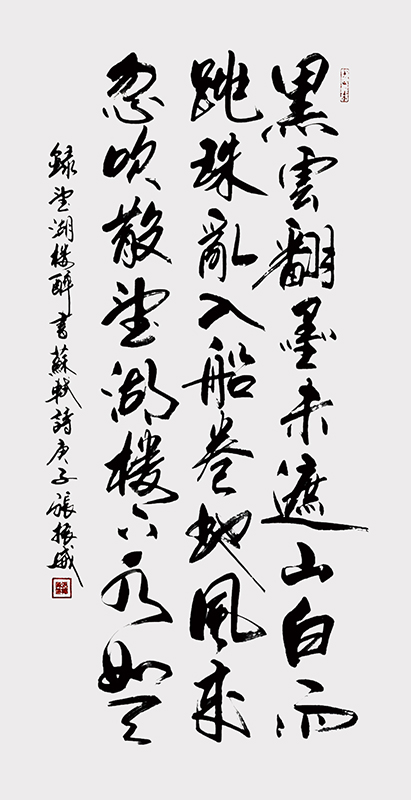 黑雲翻墨未遮山白雨
跳珠亂入船卷地風來
忽吹散望湖樓下水如天
錄望湖樓醉書蘇軾詩庚子張振威